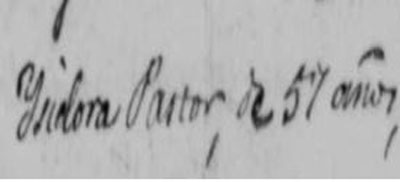 Ysidora Pastor, de 57 años,